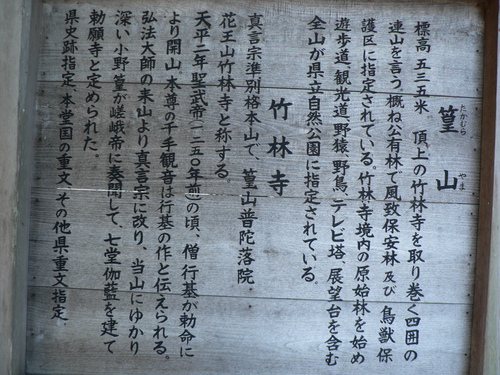 篁山
たかむら やま
標高 五三五米 頂上の竹林寺を取り巻く四囲の
連山を言う。概ね公有林で風致保安林及び 鳥獣保
護区に指定されている。竹林寺境内の原始林を始め
遊歩道、観光道、野猿、野鳥、テレビ塔、展望台を含む
全山が県立自然公園に指定されている。
竹林寺
真言宗準別格本山で、篁山普陀落院・
花王山竹林寺と称する。
天平二年聖武帝(一二五〇年前)の頃、僧 行基が勅命に
より開山、本尊の千手観音は行基の作と伝えられる。
弘法大師の来山より真言宗に改り、当山にゆかり
深い小野 篁が嵯峨帝に奏聞して、七堂伽藍を建て
勅願寺と定められた。
県史跡指定、本堂国の重文、その他県重文指定、